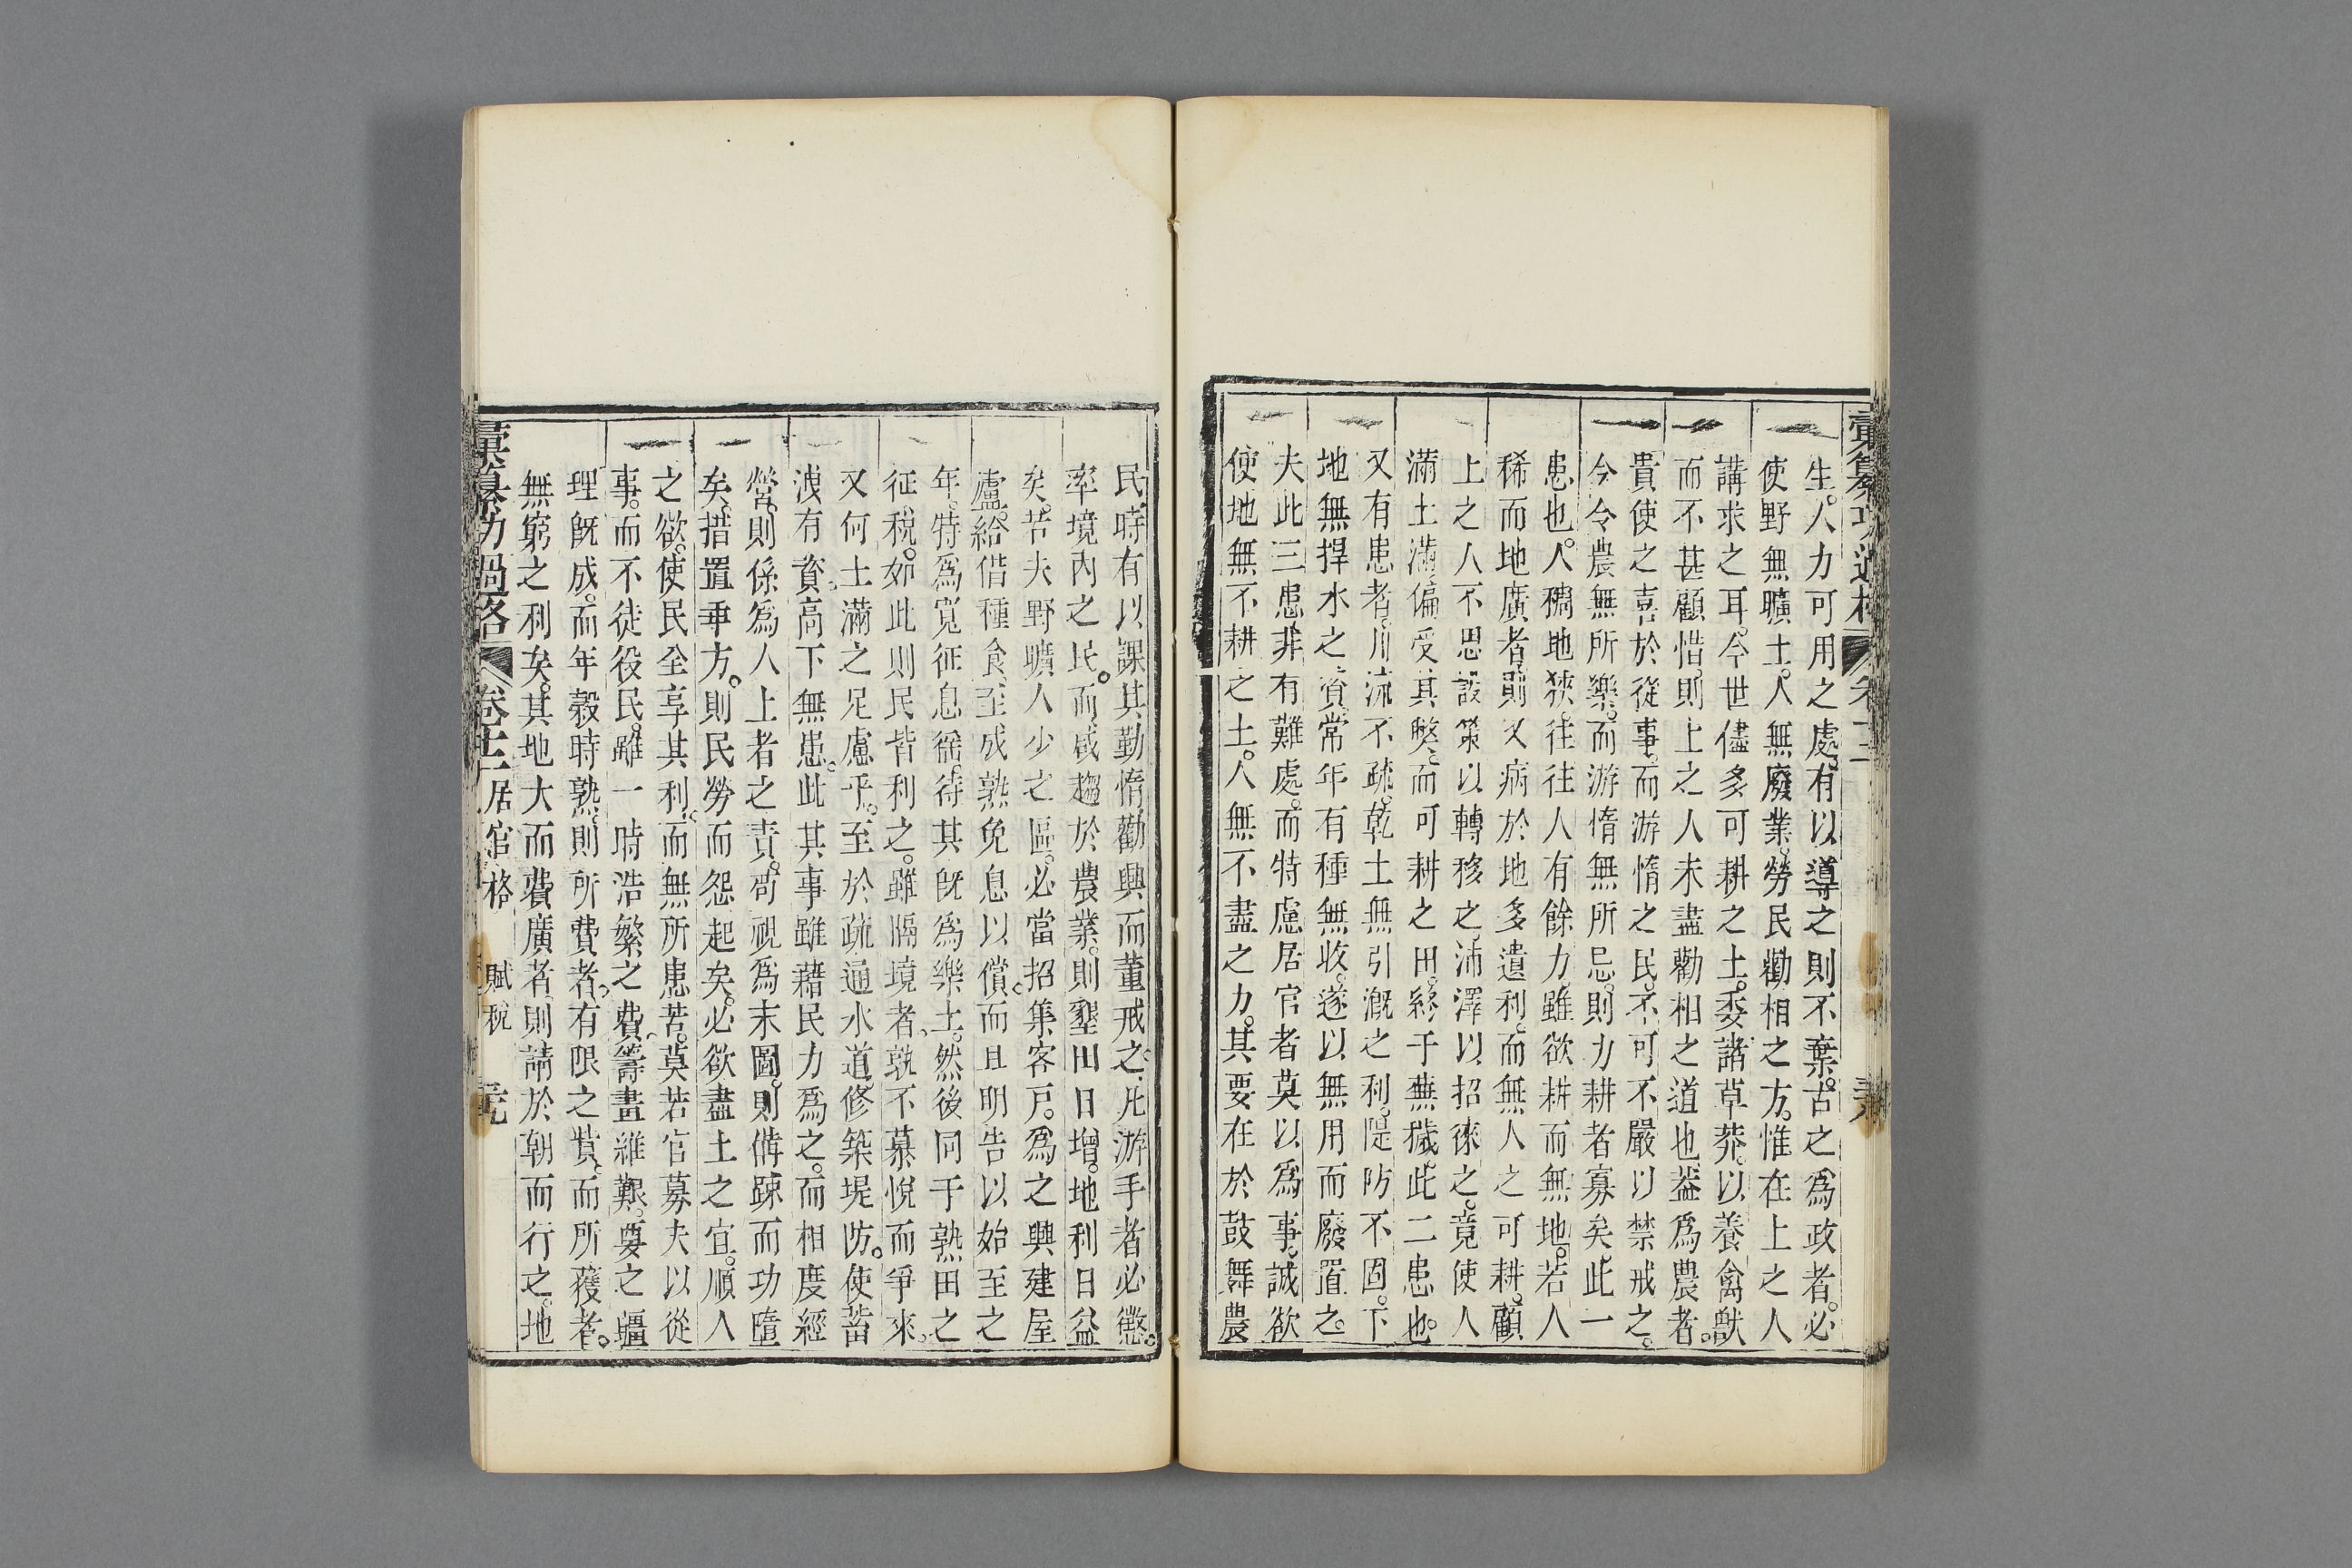 彙纂功過格　卷十二
生。人力可用之處。有以導之則不棄。古之爲政者。必
使野無曠土。人無廢業。勞民勸相之方。惟在上之人
講求之耳。今世儘多可耕之土。委諸草莽。以養禽獸
而不甚顧惜。則上之人未盡勸相之道也。葢爲農者。
貴使之喜於從事。而游惰之民。不可不嚴以禁戒之。
今令農無所樂。而游惰無所忌。則力耕者寡矣。此一
患也。人稠地狹。往往人有餘力。雖欲耕而無地。若人
稀而地廣者。則又病於地多遺利。而無人之可耕。顧
上之人不思設策以轉移之。沛澤以招徠之。竟使人
滿土滿。偏受其弊。而可耕之田。終于蕪穢。此二患也。
又有患者。川流不疏。乾土無引溉之利。隄防不固。下
地無捍水之資。常年有種無收。遂以無用而廢置之。
夫此三患。非有難處。而特慮居官者莫以爲事。誠欲
使地無不耕之土。人無不盡之力。其要在於鼓舞農
民。時有以課其勤惰。勸興而董戒之。凡游手者必懲。
率境內之民。而咸趨於農業。則墾田日增。地利日益
矣。若夫野曠人少之區。必當招集客戶。爲之興建屋
廬。給借種食。至成熟免息以償。而且明告以始至之
年。特爲寬征息徭。待其旣爲樂土。然後同于熟田之
征稅。如此則民皆利之。雖隔境者。孰不慕悅而爭來。
又何土滿之足慮乎。至於疏通水道。修築堤防。使蓄
洩有資。高下無患。此其事雖藉民力爲之。而相度經
營。則係爲人上者之責。苟視爲末圖。則備踈而功墮
矣。措置乖方。則民勞而怨起矣。必欲盡土之宜。順人
之欲。使民全享其利。而無所患苦。莫若官募夫以從
事。而不徒役民。雖一時浩繁之費。籌畫維艱。要之疆
理旣成。而年穀時熟。則所費者。有限之貲。而所獲者。
無窮之利矣。其地大而費廣者。則請於朝而行之。地
彙纂功過格　卷十二　居官格　賦稅